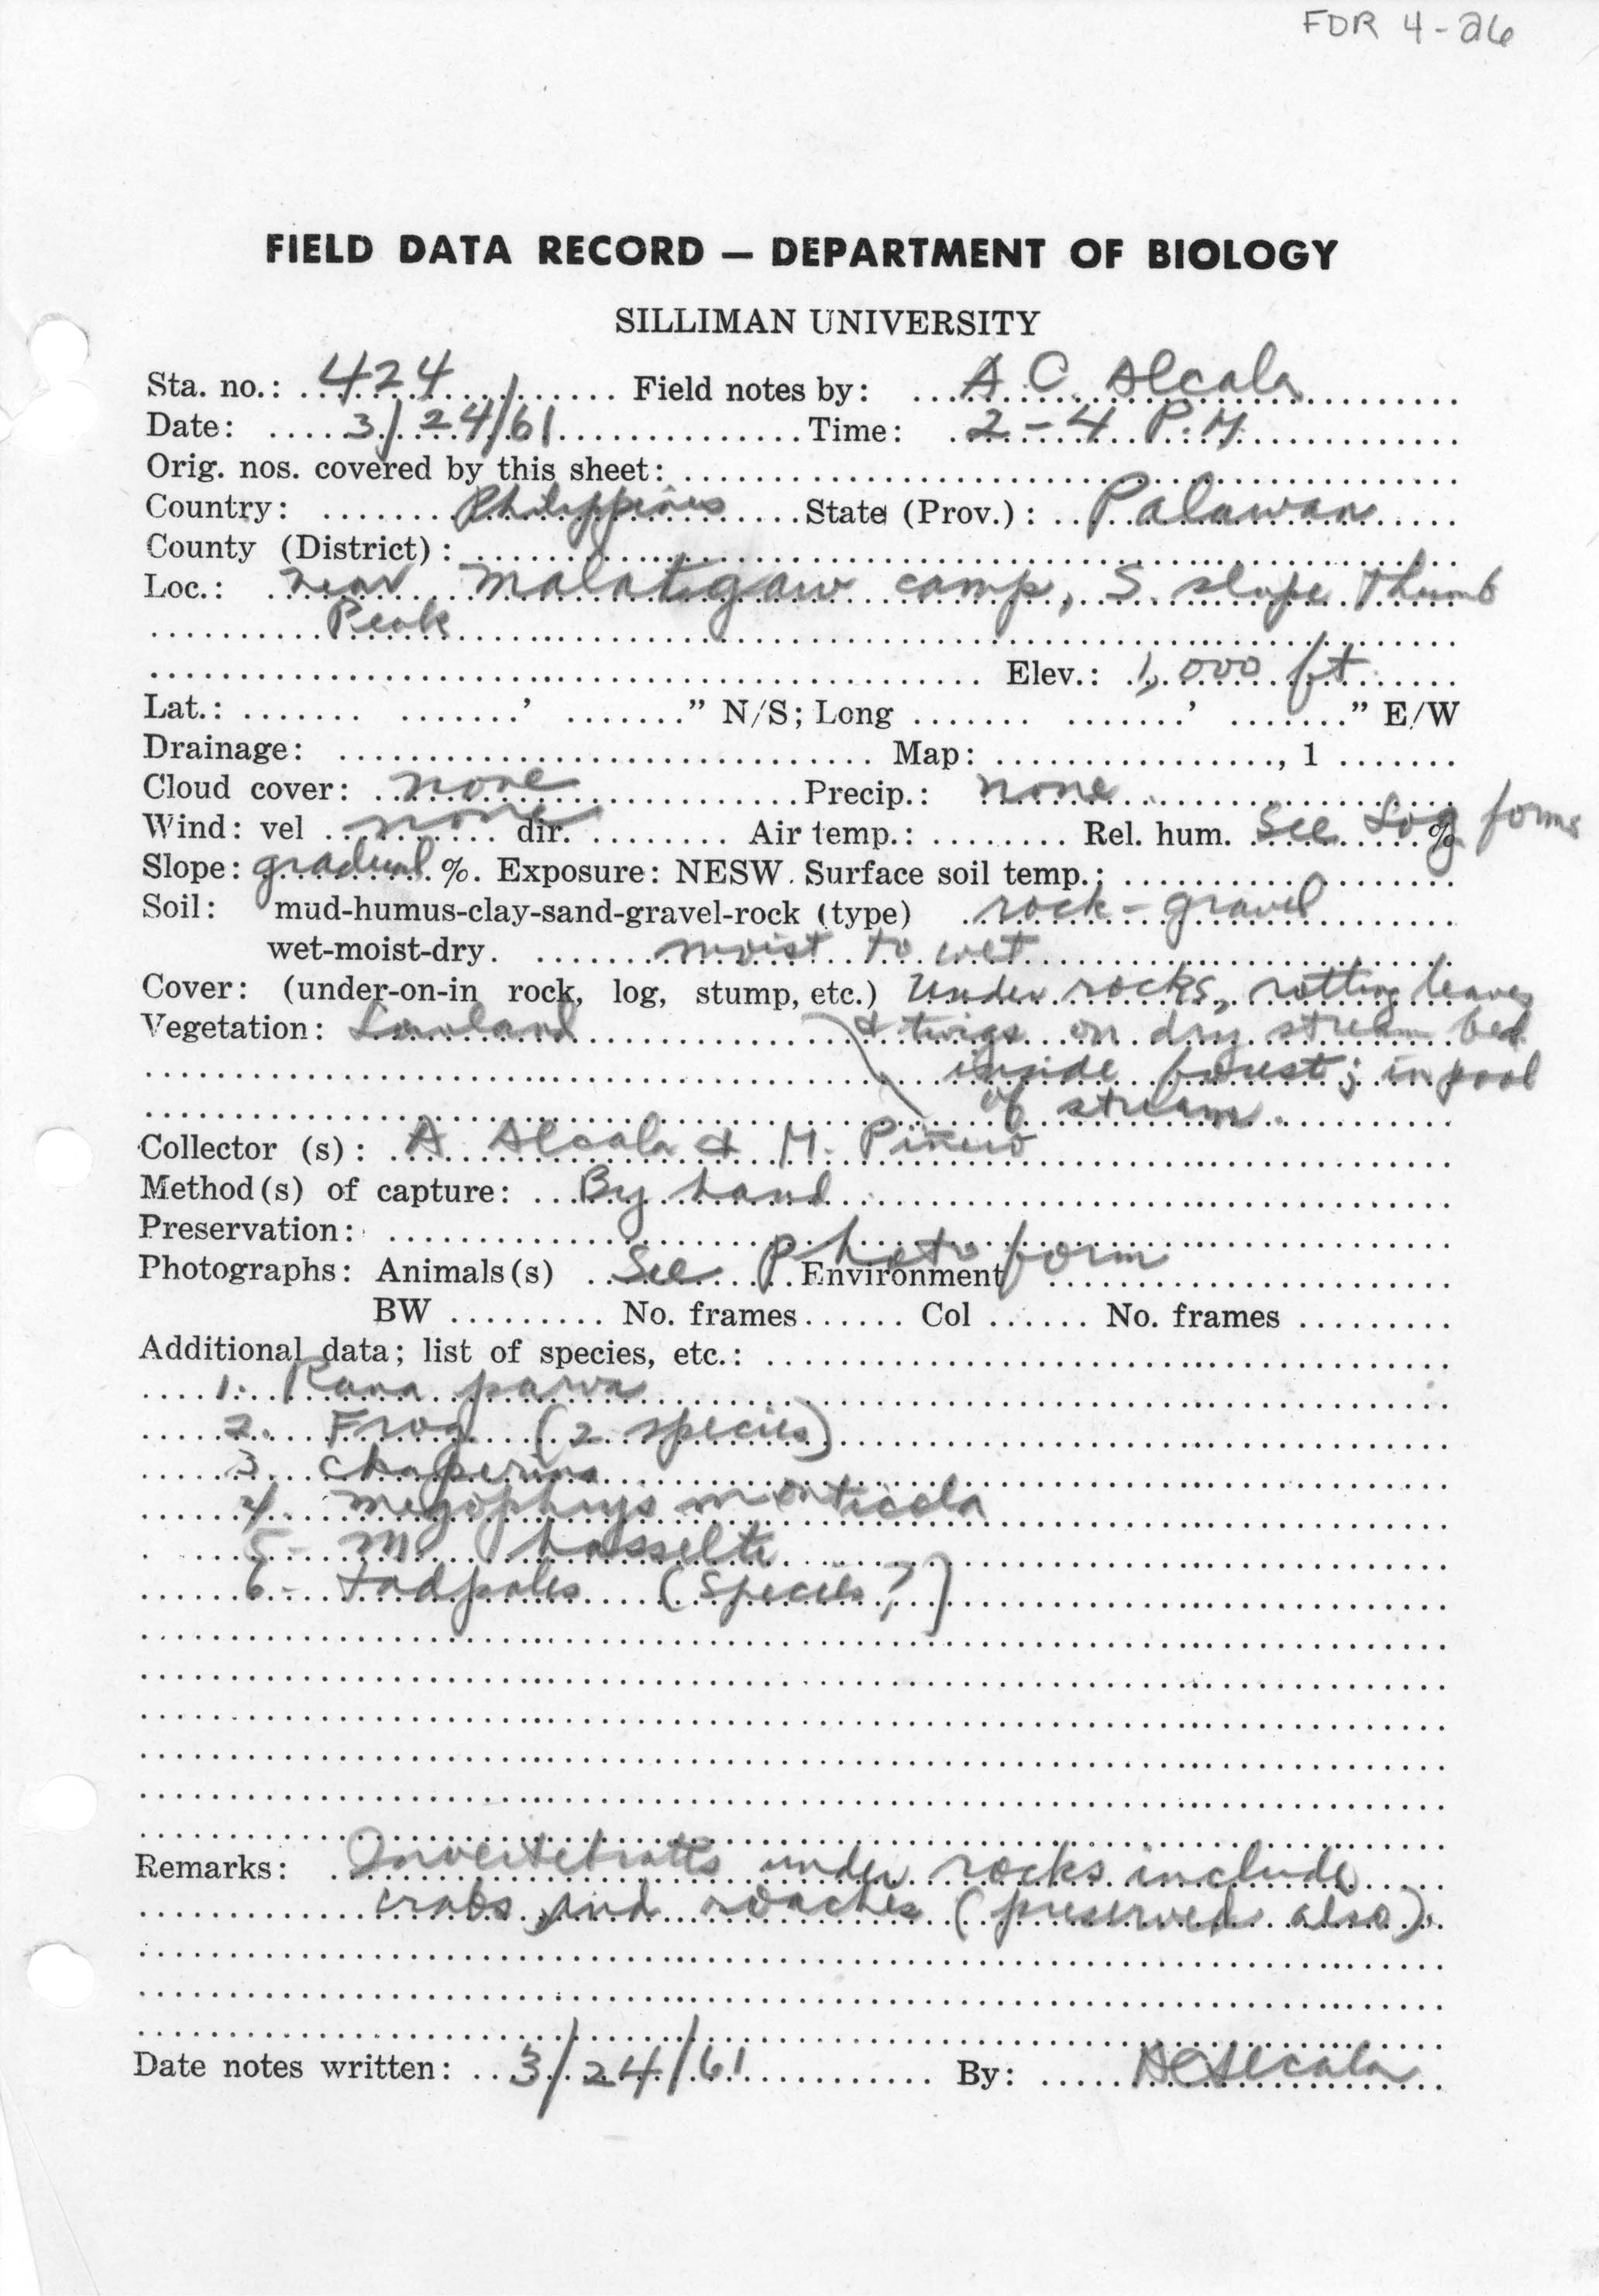 FDR 4-26
FIELD DATA RECORD — DEPARTMENT OF BIOLOGY
SILLIMAN UNIVERSITY
Sta. no.: 424 Field notes by: A C Alcala
Date: 3/24/61 Time: 2-4 P.M.
Orig. nos. covered by this sheet:
Country: Philippines State (Prov.): Palawan
County (District):
Loc.: near Malatgaw camp, S. slope Thumb
Peak
Elev.: 1,000 ft.
Lat.: ' " N/S; Long ' " E/W
Drainage: Map: , 1
Cloud cover: none Precip.: none
Wind: vel none dir. Air temp.: Rel. hum. See Log forms %
Slope: gradual %. Exposure: NESW. Surface soil temp.:
Soil: mud-humus-clay-sand-gravel-rock (type) rock-gravel
wet-moist-dry. moist to wet
Cover: (under-on-in rock, log, stump, etc.) Under rocks, rotting leaves
Vegetation: Lowland & twigs on dry stream bed
inside forest; in pool
of stream.
Collector (s): A Alcala & M. Piñero
Method(s) of capture: By hand
Preservation:
Photographs: Animals(s) See Photo form Environment
BW No. frames Col No. frames
Additional data; list of species, etc.:
1. Rana parva
2. Frog (2 species)
3. Chaperina
4. Megophrys monticola
5- M hasselti
6- tadpoles (species?)
Remarks: Invertebrates under rocks include
crabs and roaches (preserved also).
Date notes written: 3/24/61 By: A C Alcala